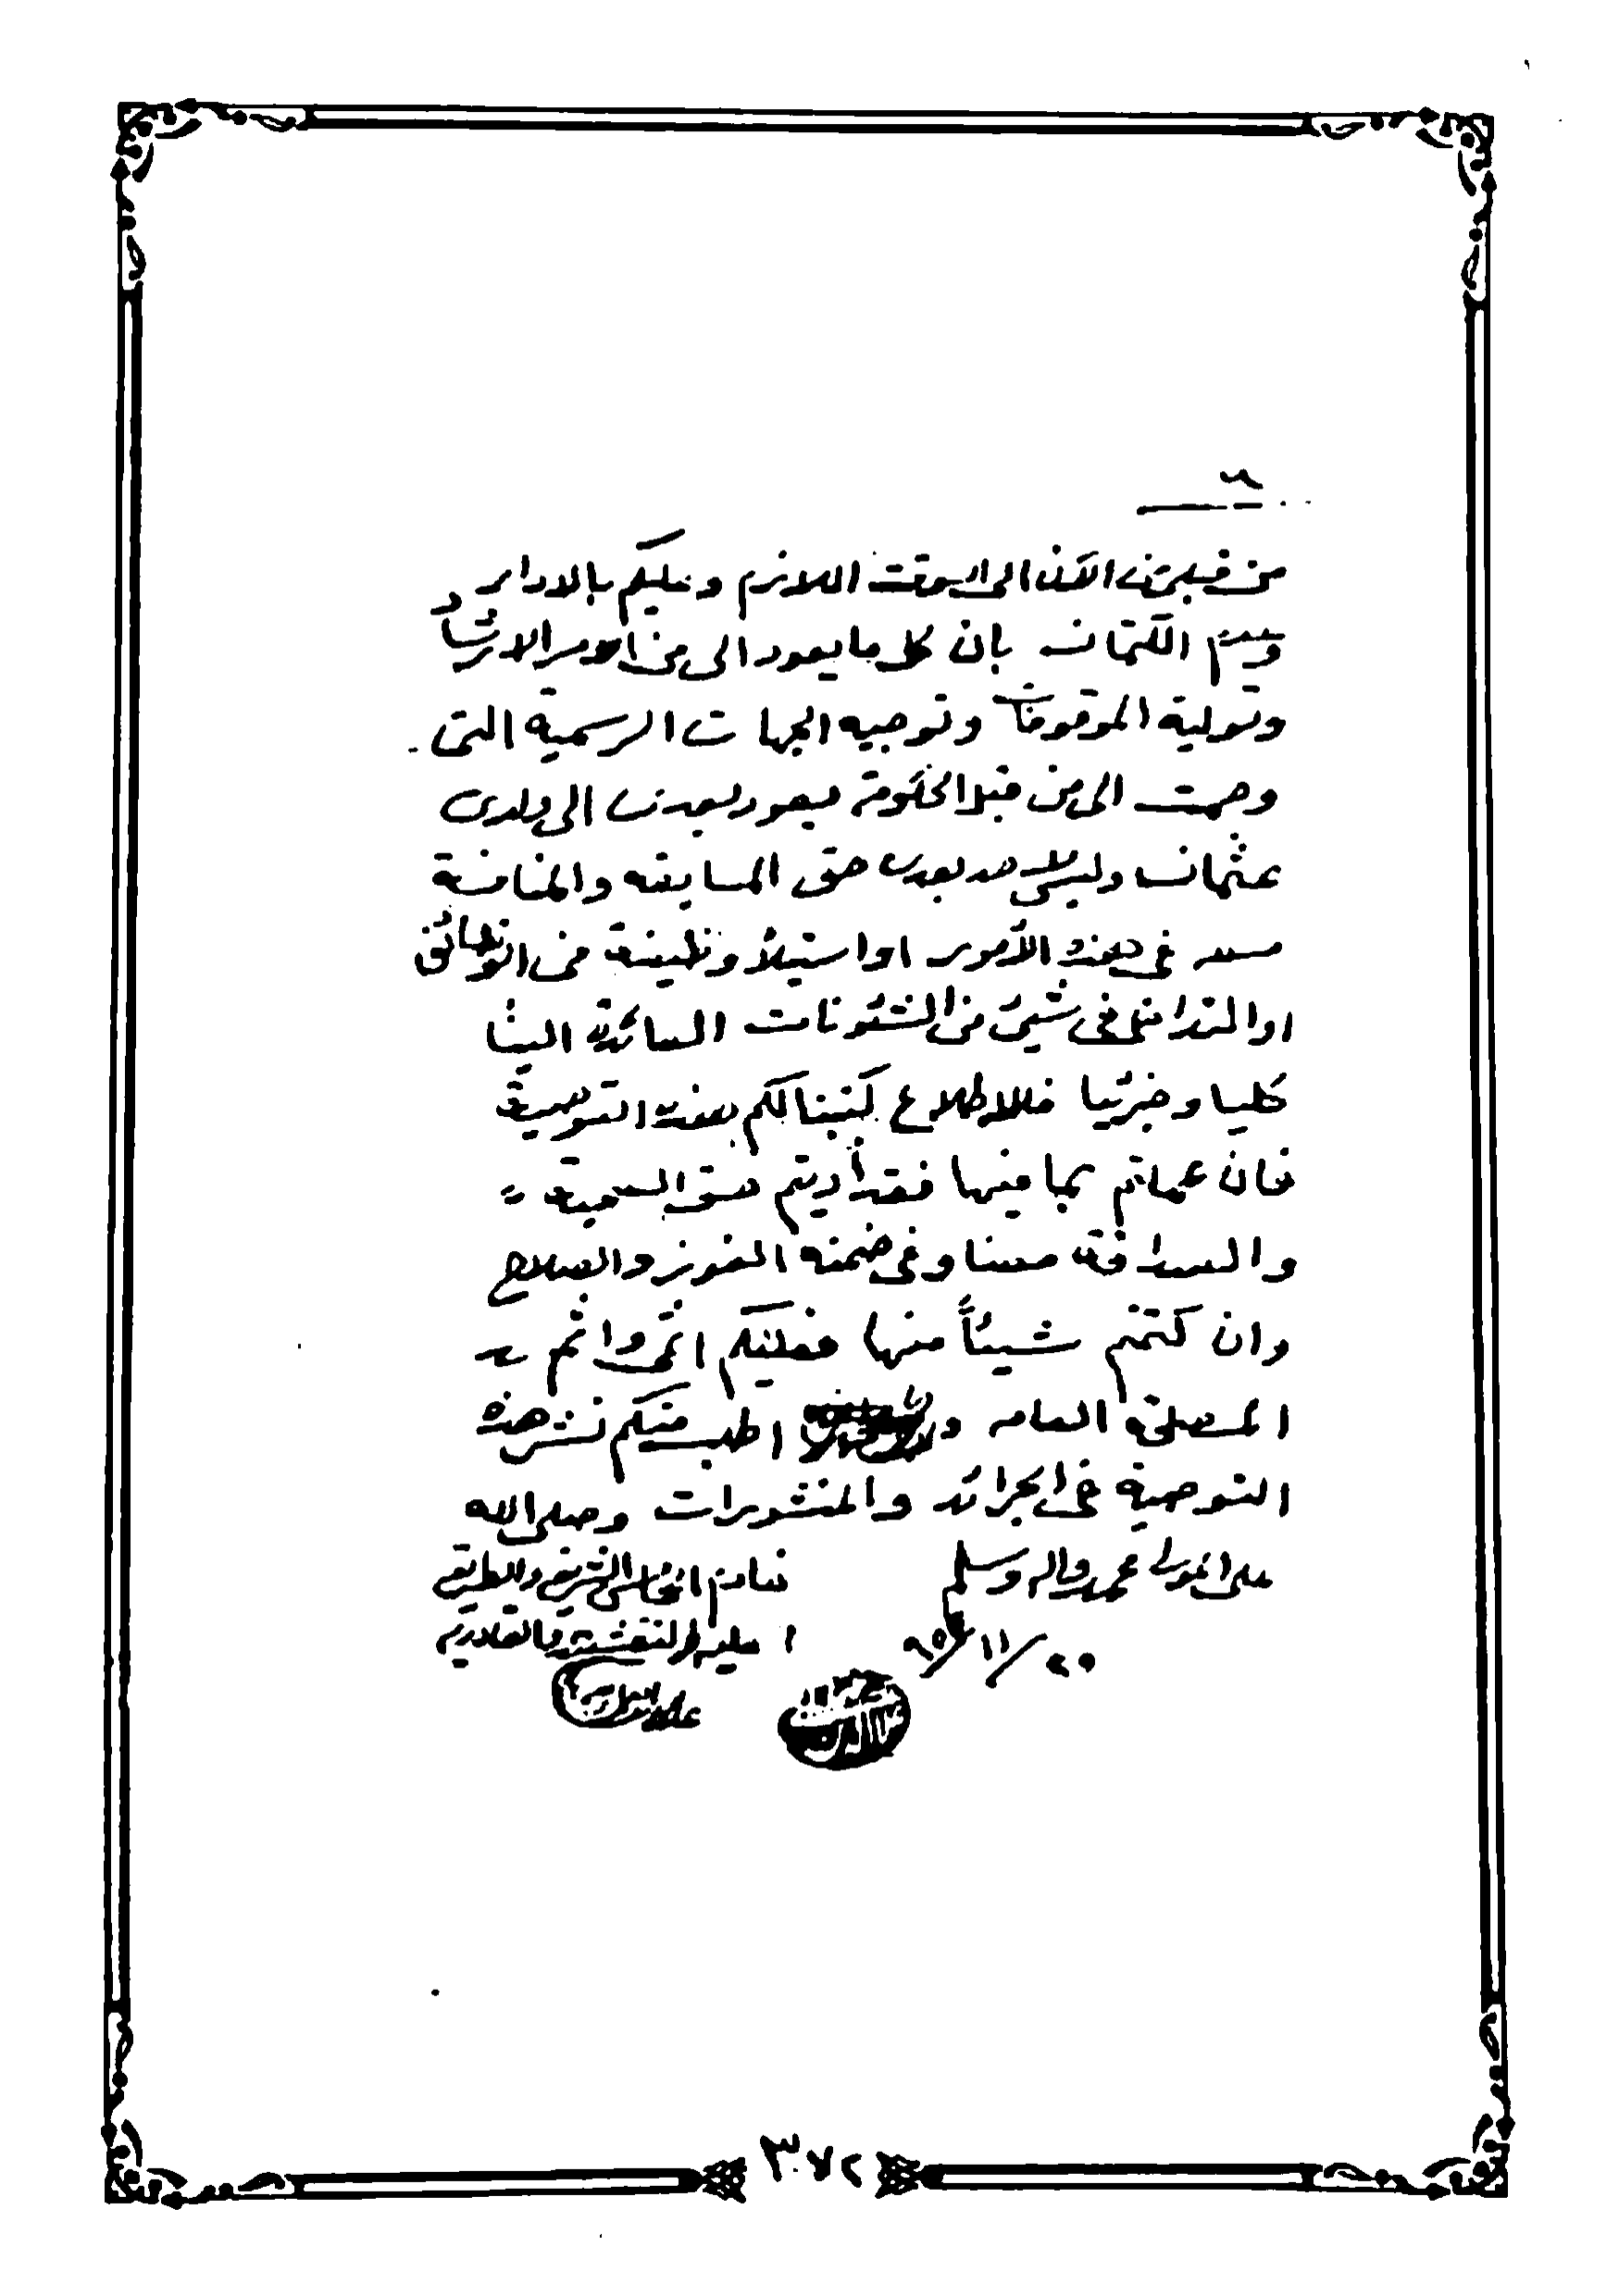 من قبلى من الآن الى الوقت اللازم وعليكم بالادار
وعدم الكتمان بان كل ما يعود الى من امور الارشاد
وتولية الموقوفات وتوجيه الجهات الرسمية التى
وجهت الى من قبل الحكومة يعود بعدى الى ولدى
عثمان وليس لاحد بعدى حق المسابقه والمنافسة
معه فى هذه الأمور او استيلاء وظيفة من الوظائف
او التداخل فى شيئ من الشئونات العائدة الينا
كليا وجزئيا فللاطلاع كتبنا لكم هذه التوصية
فان عملتم بما فيها فقد أديتم حق الصحبة
والصداقة معنا وفى ضمنه الفوز والصلاح
وان كتمتم شيئاً منها فعليكم اثمى واثم
المصلحة العامه و اطلب منكم نشر هذه
التوصية فى الجرائد والمنشورات وصلى الله
على سيدنا محمد واله وسلم
خادم الشريف والطريقه
العليه النقشبنديه والقادريه
علاءالدين
٣٧٢